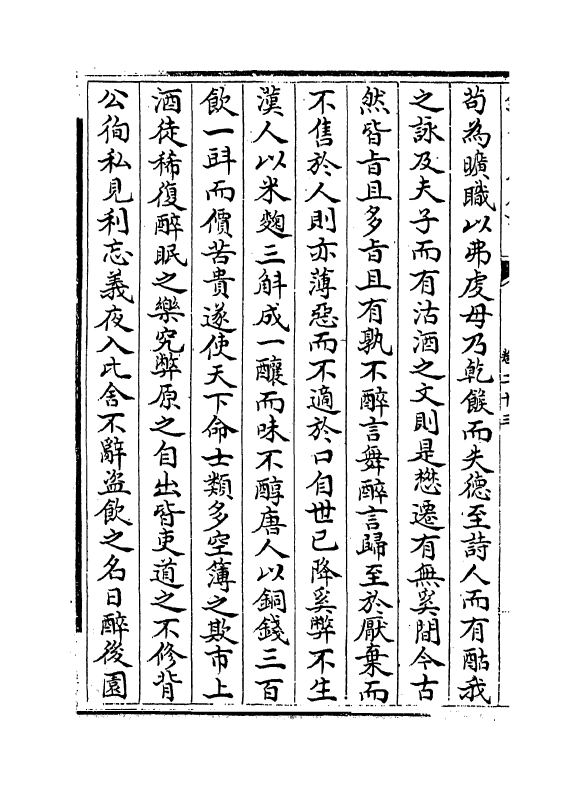 卷二十三
茍為曠職以弗虔毋乃乾餱而失德至詩人而有酤我
之詠及夫子而有沽酒之文則是懋遷有無奚間今古
然皆㫖且多㫖且有孰不醉言舞醉言歸至於厭棄而
不售於人則亦薄惡而不適於口自世已降奚弊不生
漢人以米麴三斛成一釀而味不醇唐人以銅錢三百
飲一㪷而價苦貴遂使天下命士類多空簿之欺市上
酒徒稀復醉眠之樂究弊原之自出皆吏道之不修背
公徇私見利忘義夜入比舍不辭盗飲之名日醉後園